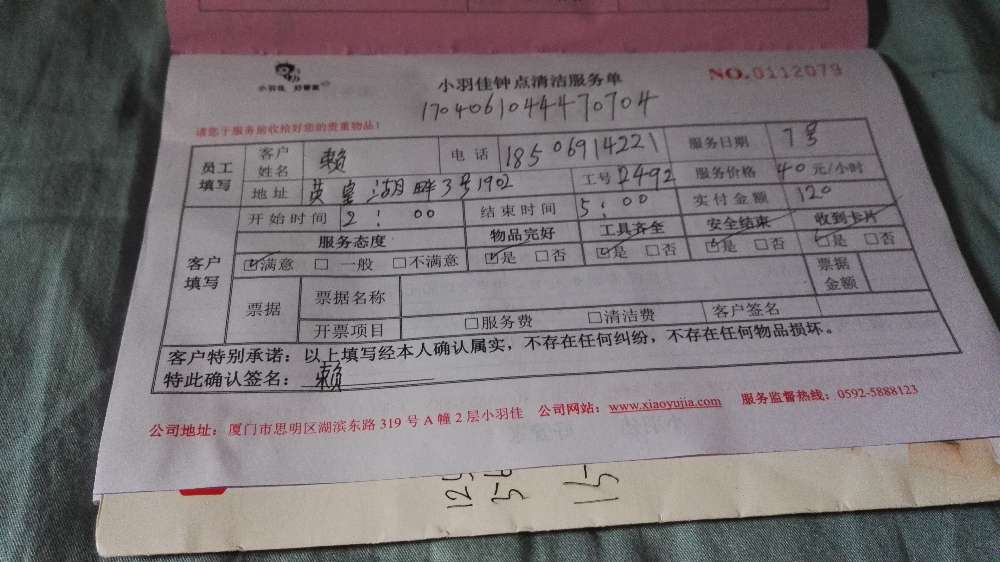 小羽佳 好管家
小羽佳钟点清洁服务单
NO.0112079
1704061044470704
请您于服务前收拾好您的贵重物品！
员工填写 客户姓名 赖 电话 18506914221 服务日期 7号
地址 英皇湖畔3号1902 工号 2492 服务价格 40 元/小时
客户填写 开始时间 2:00 结束时间 5:00 实付金额 120
服务态度 物品完好 工具齐全 安全结束 收到卡片
☑满意 □一般 □不满意 ☑是 □否 ☑是 □否 ☑是 □否 ☑是 □否
票据 票据名称 票据金额
开票项目 □服务费 □清洁费 客户签名
客户特别承诺：以上填写经本人确认属实，不存在任何纠纷，不存在任何物品损坏。
特此确认签名：赖
公司地址：厦门市思明区湖滨东路 319 号 A 幢 2 层小羽佳 公司网站：www.xiaoyujia.com 服务监督热线：0592-5888123